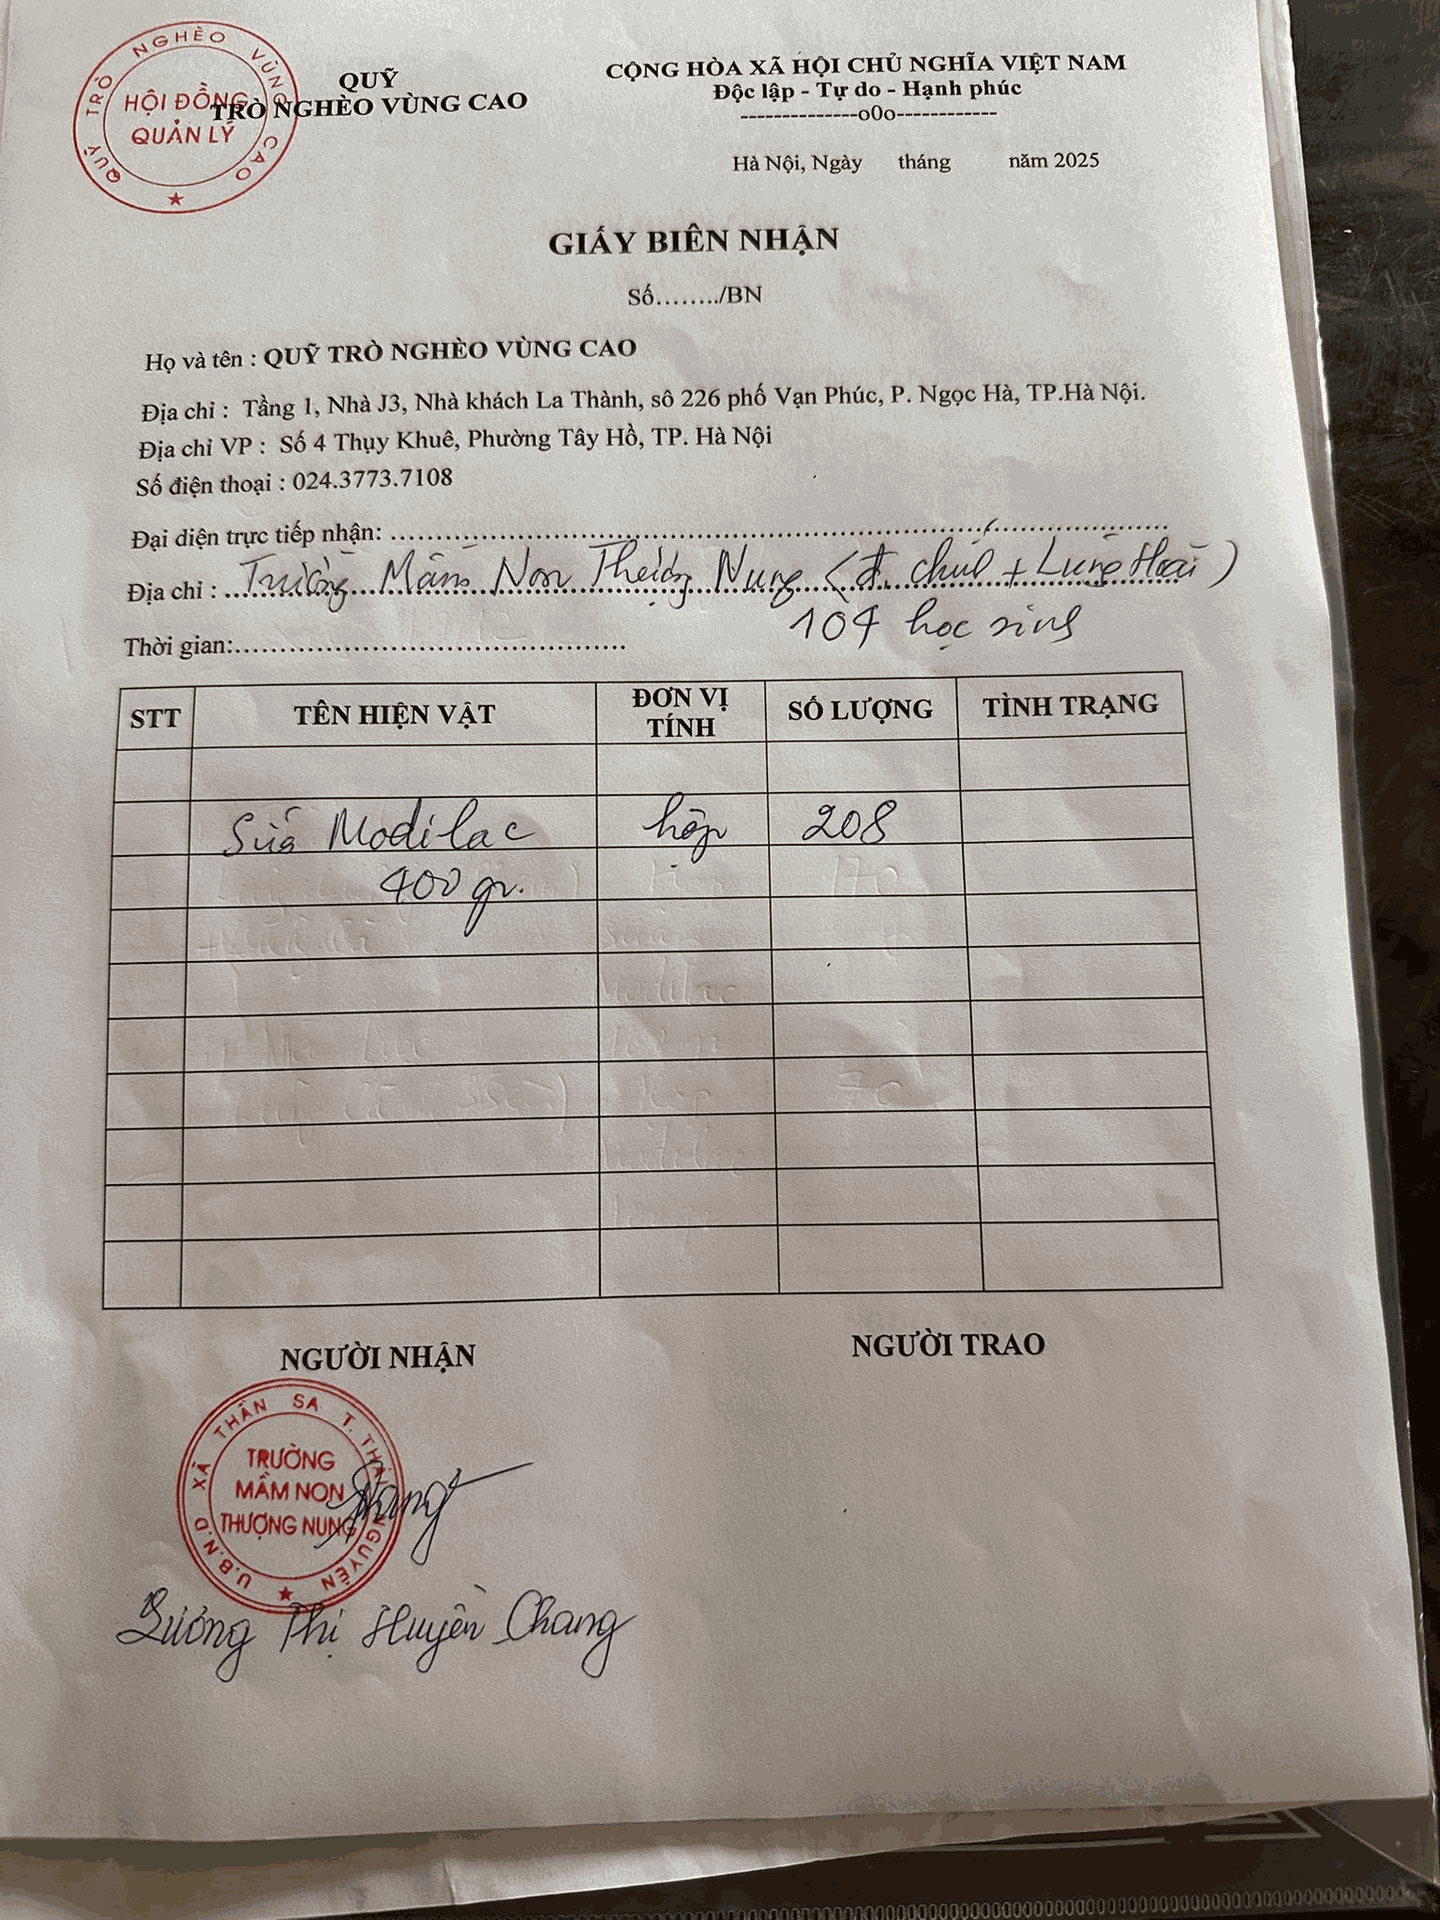 QUỸ TRÒ NGHÈO VÙNG CAO
HỘI ĐỒNG
QUẢN LÝ
QUỸ
TRÒ NGHÈO VÙNG CAO
CỘNG HÒA XÃ HỘI CHỦ NGHĨA VIỆT NAM
Độc lập - Tự do - Hạnh phúc
--------------o0o------------
Hà Nội, Ngày tháng năm 2025
GIẤY BIÊN NHẬN
Số......../BN
Họ và tên : QUỸ TRÒ NGHÈO VÙNG CAO
Địa chỉ : Tầng 1, Nhà J3, Nhà khách La Thành, sô 226 phố Vạn Phúc, P. Ngọc Hà, TP.Hà Nội.
Địa chỉ VP : Số 4 Thụy Khuê, Phường Tây Hồ, TP. Hà Nội
Số điện thoại : 024.3773.7108
Đại diện trực tiếp nhận:
Địa chỉ : Trường Mầm Non Thượng Nung (đ. chính + Lũng Hoài)
104 học sinh
Thời gian:
STT TÊN HIỆN VẬT ĐƠN VỊ TÍNH SỐ LƯỢNG TÌNH TRẠNG
Sữa Modilac hộp 208
400 gr.
NGƯỜI NHẬN NGƯỜI TRAO
U.B.N.D XÃ THẦN SA T. THÁI NGUYÊN
TRƯỜNG
MẦM NON
THƯỢNG NUNG
Dương Thị Huyền Chang